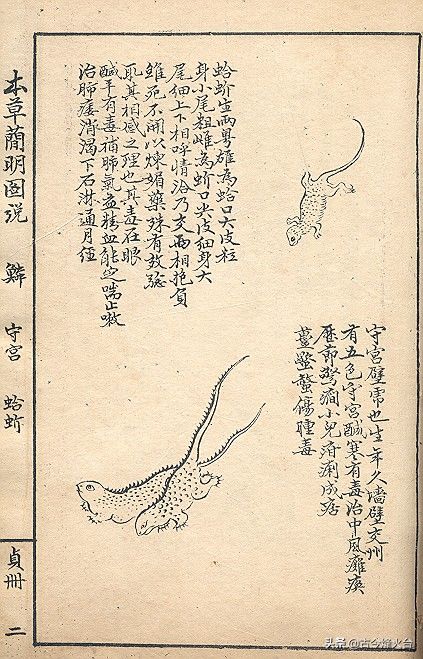 守宮壁虎也生年久墻壁交州
有五色守宮醎寒有毒治中風癱瘓
歷節驚癇小兒疳痢成痞
螫傷腫毒
蛤蚧出兩粵雄為蛤口大皮粒
身小尾粗雌為蚧口尖皮細身大
尾細上下相呼情洽乃交兩相抱負
雖死不開以煉媚藥殊有效驗
取其相感之理也其毒在眼
醎平有毒補肺氣益精血能定喘止嗽
治肺痿消渴下石淋通月經
本草簡明图説 鱗 守宮 蛤蚧 貞冊 二
头条 @古今烽火台